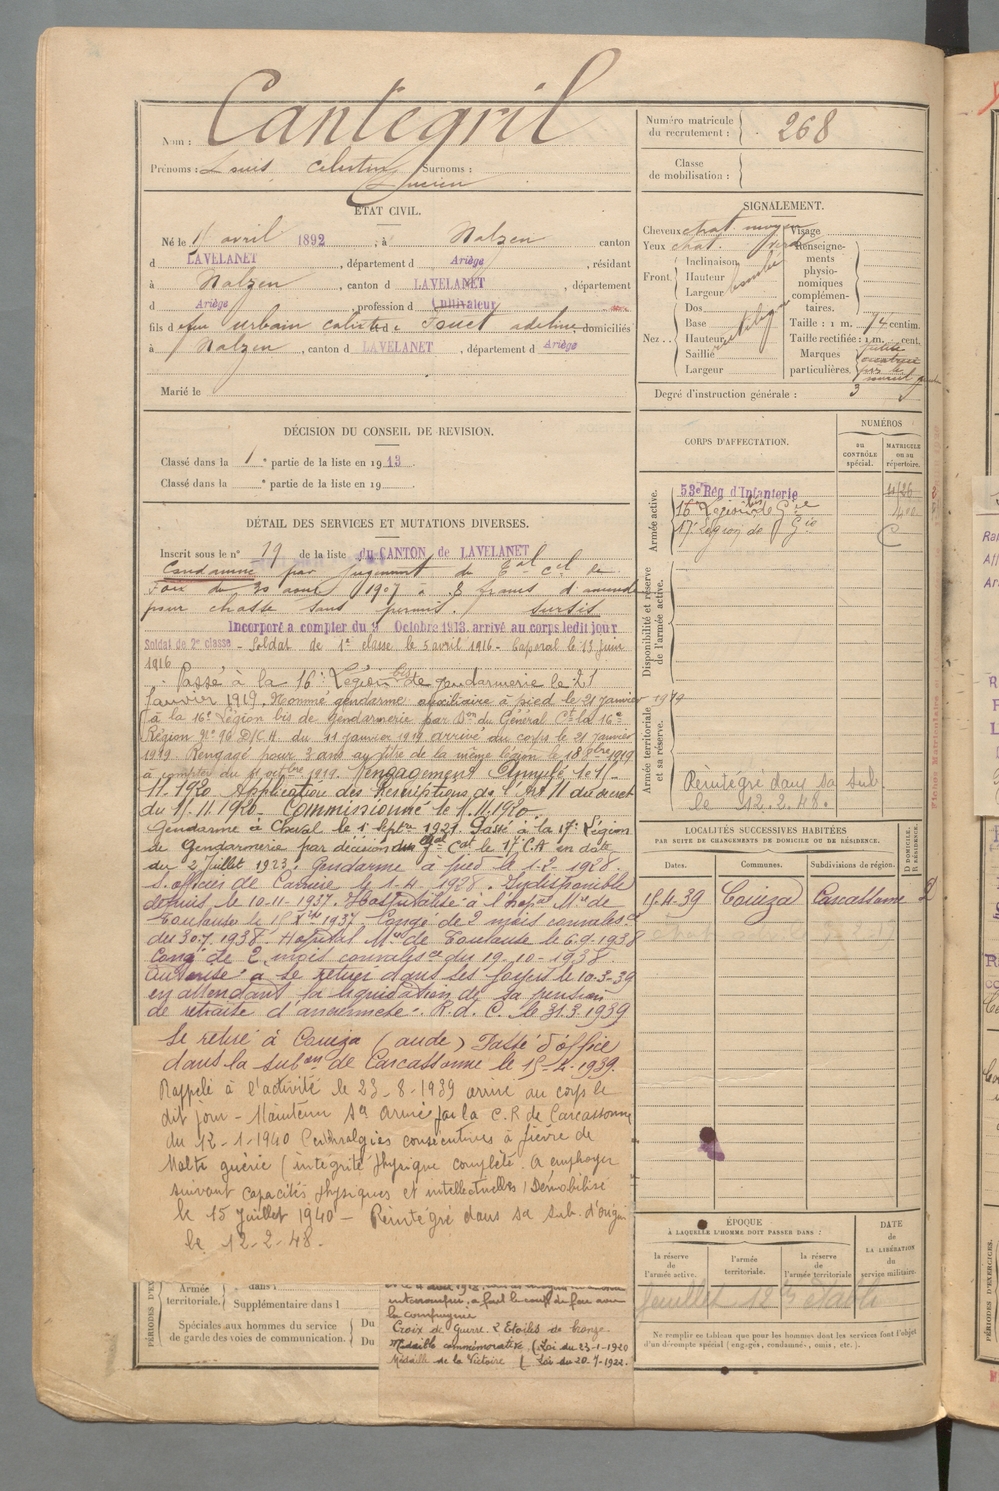 Nom : Cantegril
Prénoms : Louis Célestin Surnoms :
Lucien
ÉTAT CIVIL.
Né le 11 avril 1892, à Nalzen canton
d LAVELANET, département d Ariège, résidant
à Nalzen, canton d LAVELANET, département
d Ariège, profession d Cultivateur
fils d feu Urbain Célestin et d Fouet Adeline domiciliés
à Nalzen, canton d LAVELANET, département d Ariège
Marié le
DÉCISION DU CONSEIL DE REVISION.
Classé dans la 1e partie de la liste en 1913.
Classé dans la e partie de la liste en 19
DÉTAIL DES SERVICES ET MUTATIONS DIVERSES.
Inscrit sous le n° 19 de la liste du CANTON de LAVELANET
Condamné par jugement du Tal Cel de
Foix du 30 1907 à 8 francs d'amende
pour chasse sans permis. sursis
Incorporé à compter du 9 Octobre 1913. arrivé au corps ledit jour
Soldat de 2e classe - Soldat de 1e classe le 5 avril 1916 - Caporal le 13 juin
1916
Passé à la 16e Légion bis de Gendarmerie le 21
Janvier 1919. Nommé gendarme auxiliaire à pied le 21 Janvier 1919
à la 16e Légion bis de Gendarmerie par Don du Général Ct la 16e
Région N° 96 D/C.A. du 11 janvier 1919 arrivé au corps le 21 janvier
1919. Rengagé pour 3 ans au titre de la même légion le 18 8bre 1919
à compter du octbre 1919. Rengagement Annulé le 1/
11.1920. Application des Prescriptions de l'Art 11 du décret
du 1/.11.1920. Commissionné le 1.11.1920.
Gendarme à Cheval le 1 septre 1921. Passé à la 17e Légion
de Gendarmerie par décision du Gal Cat le 17e C.A en date
du 2 Juillet 1923. Gendarme à pied le 1-2-1928.
S. officier de Carrière le 1-4-1928. Indisponible
depuis le 10-11-1937. Hospitalisé à l'hopal Mre de
Toulouse le 1937. Congé de 2 mois convalesce
du 30.7.1938. Hopital Mre de Toulouse le 6.9.1938
Congé de 2 mois convalesce du 19-10-1938.
Autorisé à se retirer dans ses foyers le 10-3-39
en attendant la liquidation de sa pension
de retraite d'ancienneté. R.d.C. le 31.3.1939
Se retire à Couiza (Aude) Passé d'office
dans la Subon de Carcassonne le 15-4-1939.
Rappelé à l'activité le 23-8-1939 arrivé au corps le
dit jour - Maintenu Sce Armé par la C.R de Carcassonne
du 12-1-1940 consécutives à fièvre de
Malte guérie (intégrité physique complète. A employer
suivant capacités physiques et intellectuelles) Démobilisé
le 15 Juillet 1940 - Réintégré dans sa Sub. d'origine
le 12-2-48.
PÉRIODES D'EX
Armée territoriale. dans l
Supplémentaire dans l
Spéciales aux hommes du service
de garde des voies de communication.
Du
Du
interrompu, a fait le coup de feu avec
la compagnie
Croix de Guerre. 2 Etoiles de bronze.
Médaille commémorative (Loi du 23-1-1920
Médaille de la Victoire (Loi du 20-7-1922.
Numéro matricule
du recrutement : 268
Classe
de mobilisation :
SIGNALEMENT.
Cheveux chat moyen
Yeux chat. verd
Front. Inclinaison
Hauteur
Largeur
Nez .. Dos
Base
Hauteur
Saillie
Largeur
rectiligne
Visage
Renseigne-
ments
physio-
nomiques
complémen-
taires.
Taille : 1 m. 74 centim.
Taille rectifiée : 1 m. cent.
Marques
particulières.
petite
cicatrice
Degré d'instruction générale : 3
CORPS D'AFFECTATION.
NUMÉROS
au
CONTRÔLE
spécial.
MATRICULE
ou au
répertoire.
Armée active.
53e Rég d'Infanterie 4126
16e Légion bis de Gie
17e Légion de Gie
Disponibilité et réserve
de l'armée active.
Armée territoriale
et sa réserve.
Réintégré dans sa sub.
le 12.2.48.
LOCALITÉS SUCCESSIVES HABITÉES
PAR SUITE DE CHANGEMENTS DE DOMICILE OU DE RÉSIDENCE.
Dates. Communes. Subdivisions de région. D. DOMICILE. R. RÉSIDENCE.
15-4-39 Couiza Carcassonne D
ÉPOQUE
À LAQUELLE L'HOMME DOIT PASSER DANS :
la réserve
de
l'armée active.
l'armée
territoriale.
la réserve
de
l'armée territoriale
DATE
de
LA LIBÉRATION
du
service militaire.
Feuillet 12 établi
Ne remplir ce tableau que pour les hommes dont les services font l'objet
d'un décompte spécial (engagés, condamnés, omis, etc.).